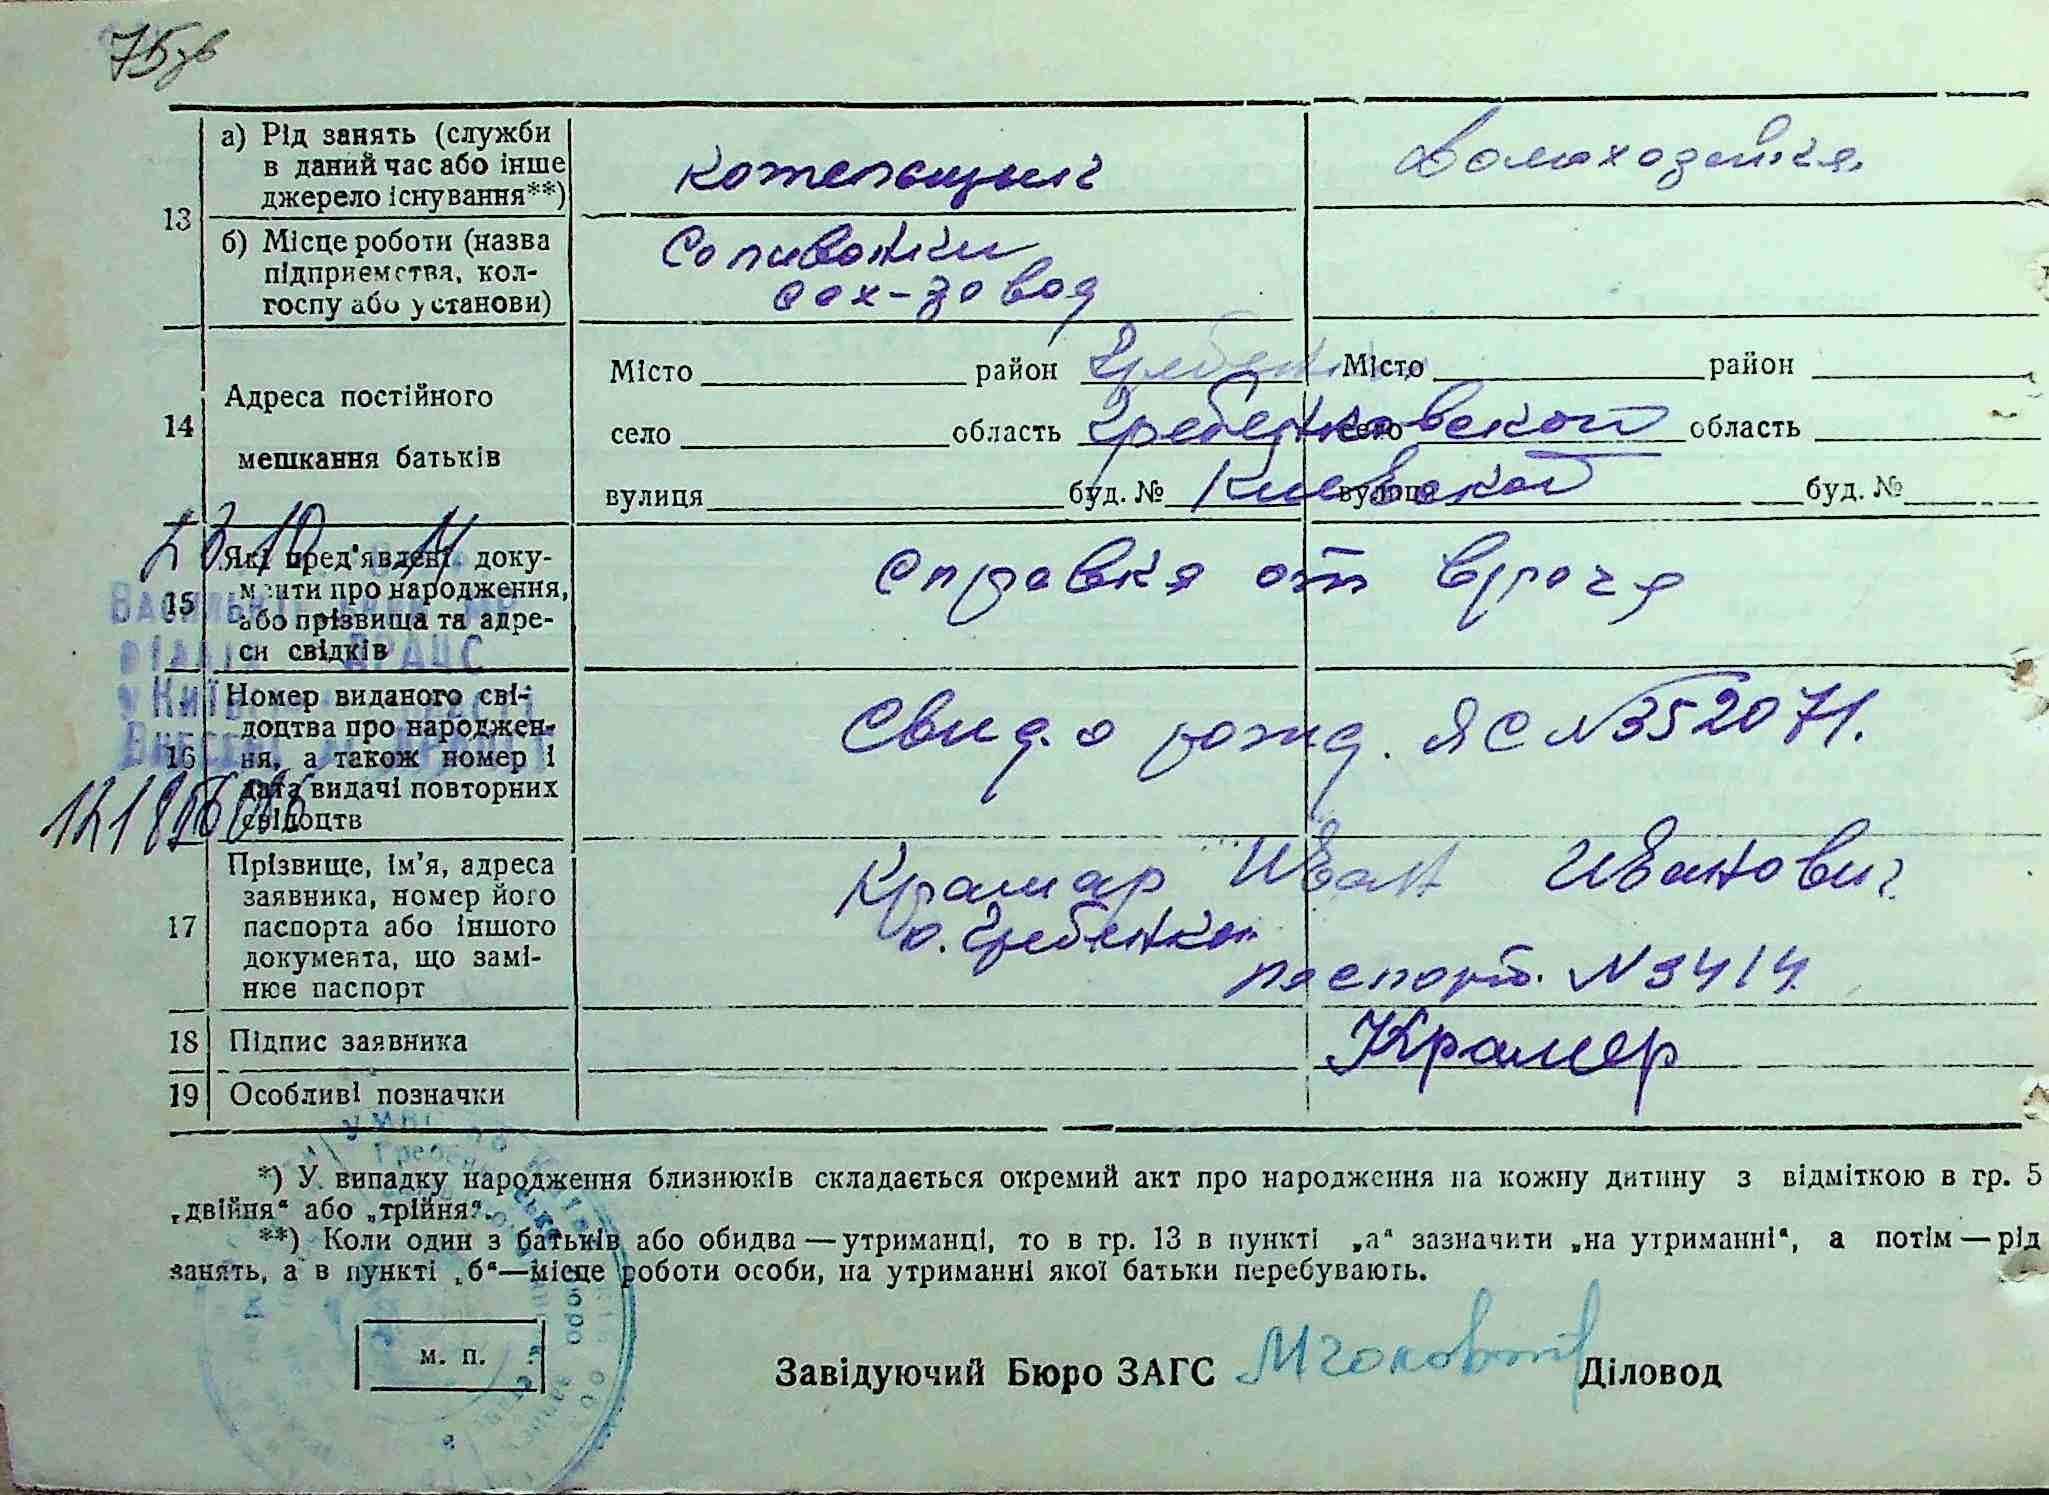 75зв
а) Рід занять (служби
в даний час або інше
джерело існування**)
котельщик
домохозяйка
13
б) Місце роботи (назва
підприємства, кол-
госпу або установи)
Саливонки
сах-завод
14
Адреса постійного
мешкання батьків
Місто район Гребенки Місто район
село область Гребенковского село область
вулиця буд. № Киевской вулиця буд. №
15
Які пред'явлені доку-
менти про народження,
або прізвища та адре-
си свідків
Справка от врача
16
Номер виданого сві-
доцтва про народжен-
ня, а також номер і
дата видачі повторних
свідоцтв
Свид. о рожд. ЯС №352071.
17
Прізвище, ім'я, адреса
заявника, номер його
паспорта або іншого
документа, що замі-
нює паспорт
Крамар Иван Иванович
с. Гребенки
паспорт. №3414
18 Підпис заявника
Крамар
19 Особливі позначки
*) У випадку народження близнюків складається окремий акт про народження на кожну дитину з відміткою в гр. 5
„двійня“ або „трійня“.
**) Коли один з батьків або обидва — утриманці, то в гр. 13 в пункті „а“ зазначити „на утриманні“, а потім — рід
занять, а в пункті „б“ — місце роботи особи, на утриманні якої батьки перебувають.
м. п.
Завідуючий Бюро ЗАГС Діловод